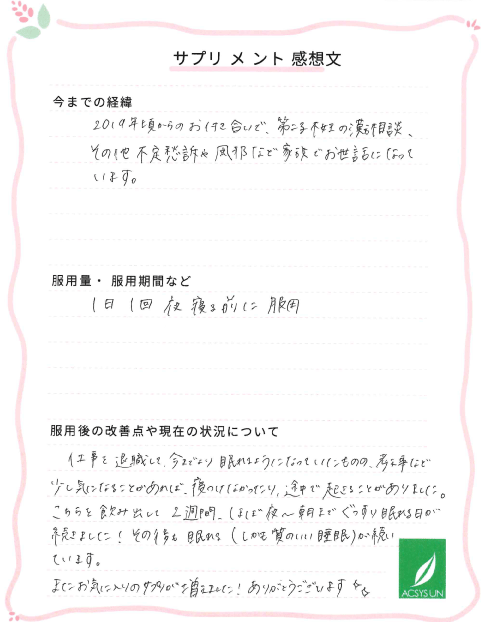 サプリメント感想文
今までの経緯
2019年頃からのお付き合いで、第二子不妊の漢方相談、
その他 不定愁訴や 風邪など 家族でお世話になって
います。
服用量・服用期間など
1日 1回 夜 寝る前に 服用
服用後の改善点や現在の状況について
仕事を 退職して、今までより 眠れるようになっていたものの、考え事など
少し気になることがあれば、寝つけなかったり、途中で起きることがありました。
こちらを 飲み出して 2週間、ほぼ 夜〜朝まで ぐっすり眠れる日が
続きました！その後も 眠れる（しかも 質のいい睡眠）が続い
ています。
またお気に入りのサプリが増えました！ありがとうございます
ACSYS UN